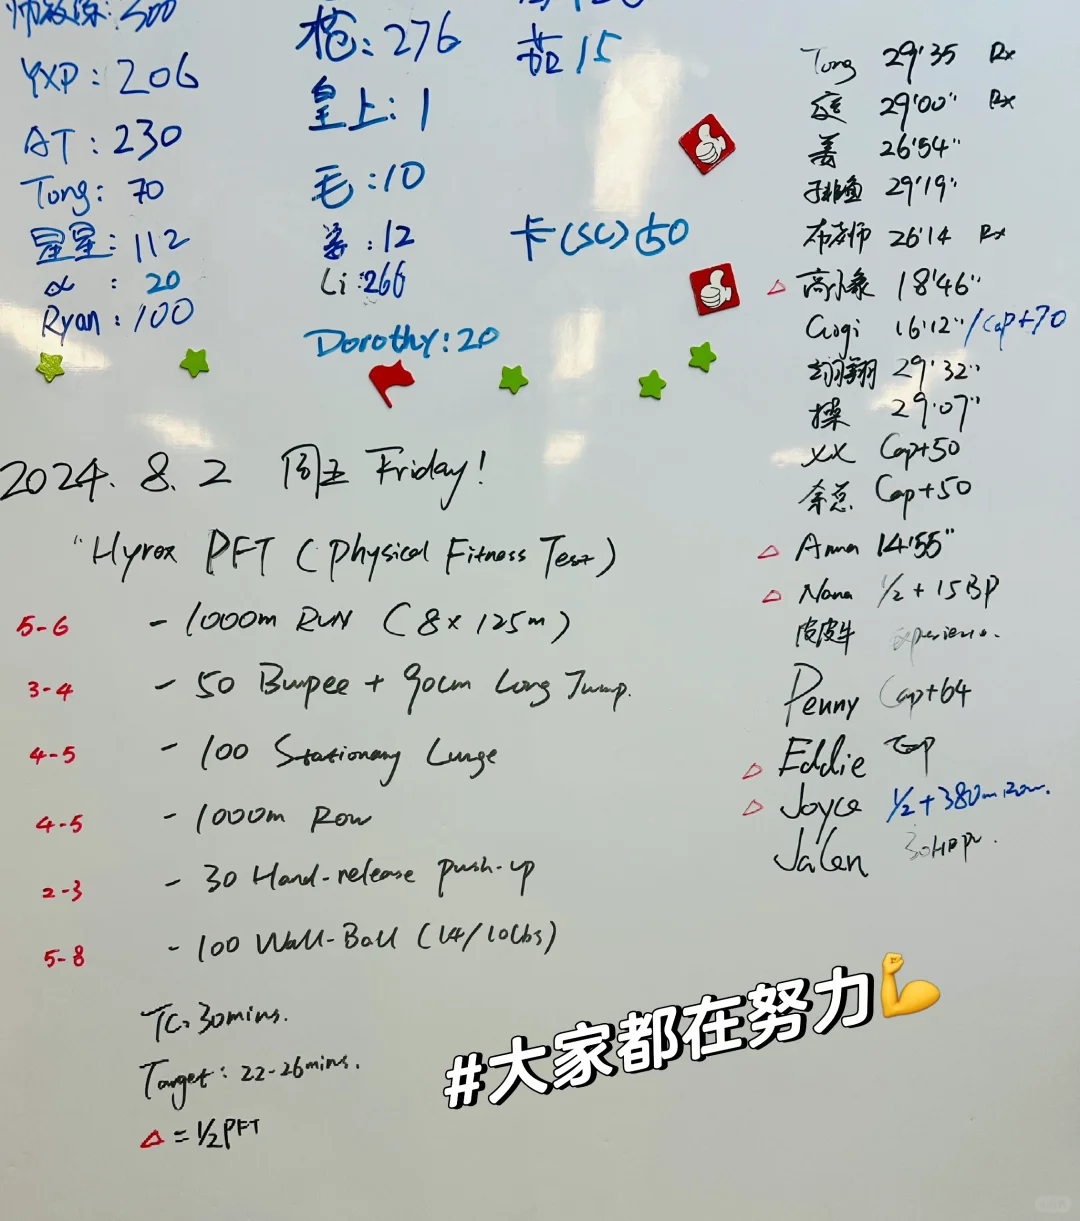 师教练:300
YXP:206
AT:230
Tong:70
星星:112
α:20
Ryan:100
枪:276
皇上:1
毛:10
姜:12
Li:266
Dorothy:20
茹15
卡(SC)50
2024.8.2 周五 Friday!
"Hyrox PFT (Physical Fitness Test)
5-6 - 1000m RUN (8×125m)
3-4 - 50 Burpee + 90cm Long Jump.
4-5 - 100 Stationary Lunge
4-5 - 1000m Row
2-3 - 30 Hand-release push-up
5-8 - 100 Wall-Ball (14/10lbs)
TC: 30mins.
Target: 22-26mins.
△ = 1/2 PFT
Tong 29'35 Rx
庭 29'00" Rx
姜 26'54"
29'19"
布教师 26'14 Rx
△ 高小象 18'46"
Gogi 16'12" /Cap+70
翊翔 29'32"
操 29'07"
XX Cap+50
余总 Cap+50
△ Anna 14'55"
△ Nana 1/2 + 15BP
皮皮牛 experience.
Penny Cap+64
△ Eddie
△ Joyce 1/2 + 380m Row.
Jalen 30HRPU.
#大家都在努力💪